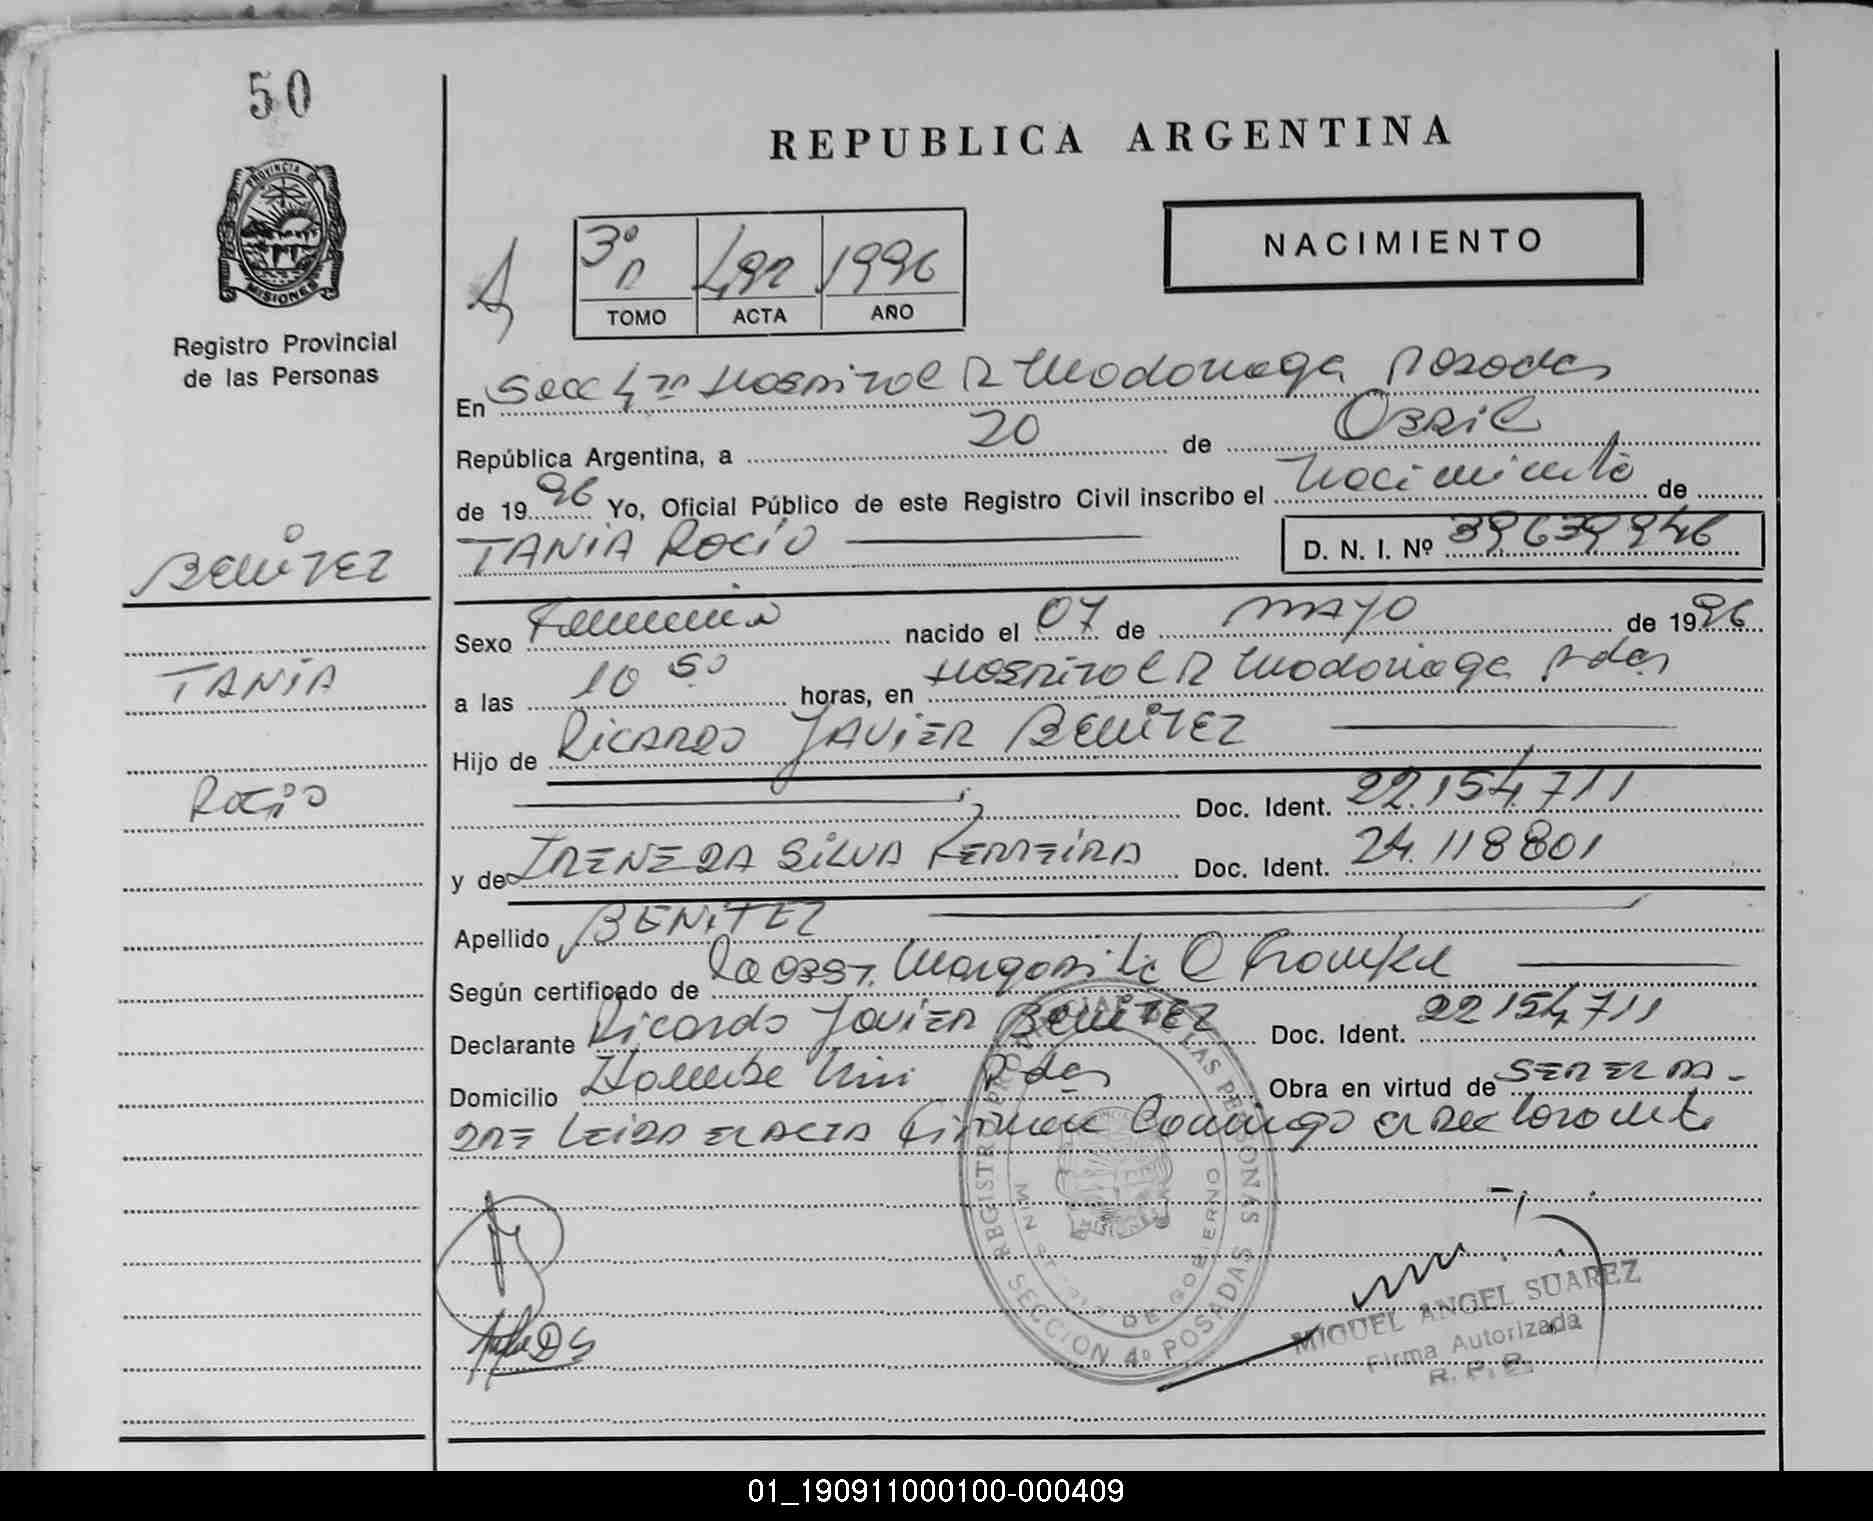 50
REPUBLICA ARGENTINA
PROVINCIA DE
MISIONES
Registro Provincial
de las Personas
NACIMIENTO
3º 1492 1996
TOMO ACTA AÑO
En Secc 4ta Hospital R Madariaga Posadas
República Argentina, a 20 de Abril
de 1996 Yo, Oficial Público de este Registro Civil inscribo el Nacimiento de
BENíTEZ
TANIA ROCíO D. N. I. Nº 39639946
Sexo Femenino nacido el 07 de MAYO de 1996
TANIA
a las 10 50 horas, en Hospital R Madariaga Pdas
Hijo de RICARDO JAVIER BENíTEZ
ROCíO
Doc. Ident. 22.154.711
y de IRENE DA SILVA FERREIRA Doc. Ident. 24.118801
Apellido BENíTEZ
Según certificado de la obst. Margarita
Declarante Ricardo Javier BENITEZ Doc. Ident. 22154711
Domicilio Pdas Obra en virtud de
LEIDA EL ACTA Firman Conmigo el declarante
REGISTRO PROVINCIAL DE LAS PERSONAS
MINISTERIO DE GOBIERNO
SECCION 4º POSADAS
MIGUEL ANGEL SUAREZ
Firma Autorizada
R. P. P.
01_190911000100-000409